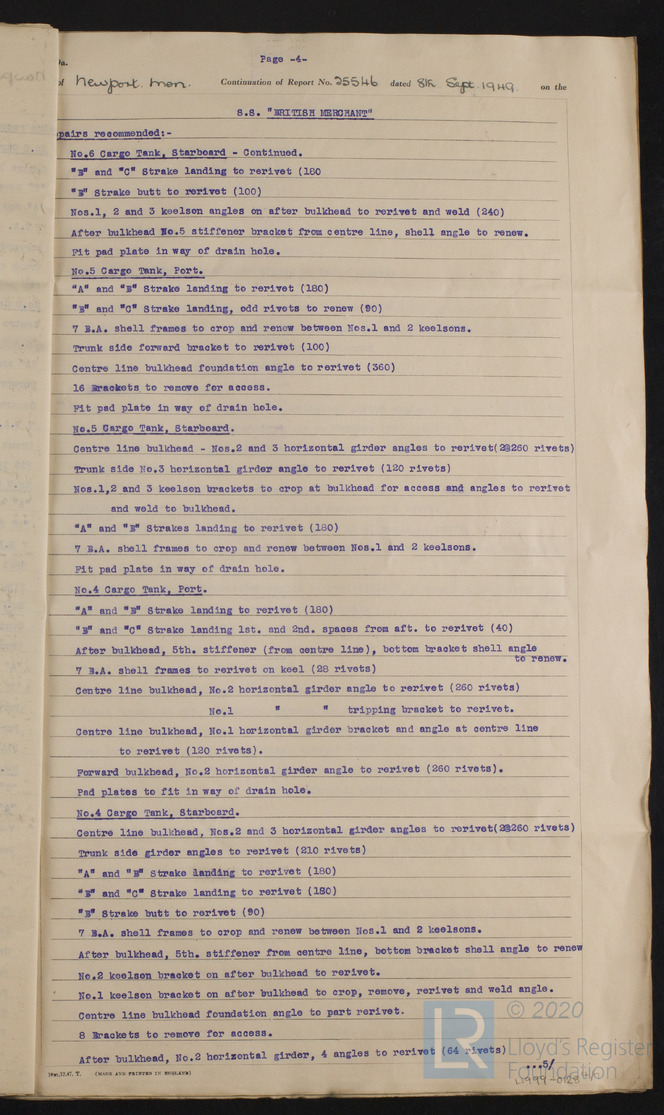 9a.
Page -4-
of Newport. Mon. Continuation of Report No. 25546 dated 8th Sept. 1949. on the
S.S. "BRITISH MERCHANT"
pairs recommended:-
No.6 Cargo Tank, Starboard - Continued.
"B" and "C" Strake landing to rerivet (180
"B" Strake butt to rerivet (100)
Nos.1, 2 and 3 keelson angles on after bulkhead to rerivet and weld (240)
After bulkhead No.5 stiffener bracket from centre line, shell angle to renew.
Fit pad plate in way of drain hole.
No.5 Cargo Tank, Port.
"A" and "B" Strake landing to rerivet (180)
"B" and "C" Strake landing, odd rivets to renew (90)
7 B.A. shell frames to crop and renew between Nos.1 and 2 keelsons.
Trunk side forward bracket to rerivet (100)
Centre line bulkhead foundation angle to rerivet (360)
16 Brackets to remove for access.
Fit pad plate in way of drain hole.
No.5 Cargo Tank, Starboard.
Centre line bulkhead - Nos.2 and 3 horizontal girder angles to rerivet(2@260 rivets)
Trunk side No.3 horizontal girder angle to rerivet (120 rivets)
Nos.1,2 and 3 keelson brackets to crop at bulkhead for access and angles to rerivet
and weld to bulkhead.
"A" and "B" Strakes landing to rerivet (180)
7 B.A. shell frames to crop and renew between Nos.1 and 2 keelsons.
Fit pad plate in way of drain hole.
No.4 Cargo Tank, Port.
"A" and "B" Strake landing to rerivet (180)
"B" and "C" Strake landing 1st. and 2nd. spaces from aft. to rerivet (40)
After bulkhead, 5th. stiffener (from centre line), bottom bracket shell angle
to renew.
7 B.A. shell frames to rerivet on keel (28 rivets)
Centre line bulkhead, No.2 horizontal girder angle to rerivet (260 rivets)
No.1 " " tripping bracket to rerivet.
Centre line bulkhead, No.1 horizontal girder bracket and angle at centre line
to rerivet (120 rivets).
Forward bulkhead, No.2 horizontal girder angle to rerivet (260 rivets).
Pad plates to fit in way of drain hole.
No.4 Cargo Tank, Starboard.
Centre line bulkhead, Nos.2 and 3 horizontal girder angles to rerivet(2@260 rivets)
Trunk side girder angles to rerivet (210 rivets)
"A" and "B" Strake landing to rerivet (180)
"B" and "C" Strake landing to rerivet (180)
"B" Strake butt to rerivet (90)
7 B.A. shell frames to crop and renew between Nos.1 and 2 keelsons.
After bulkhead, 5th. stiffener from centre line, bottom bracket shell angle to renew
No.2 keelson bracket on after bulkhead to rerivet.
No.1 keelson bracket on after bulkhead to crop, remove, rerivet and weld angle.
Centre line bulkhead foundation angle to part rerivet.
8 Brackets to remove for access.
After bulkhead, No.2 horizontal girder, 4 angles to rerivet (64 rivets)
...5/
(MADE AND PRINTED IN ENGLAND)
LR © 2020
Lloyd's Register
Foundation